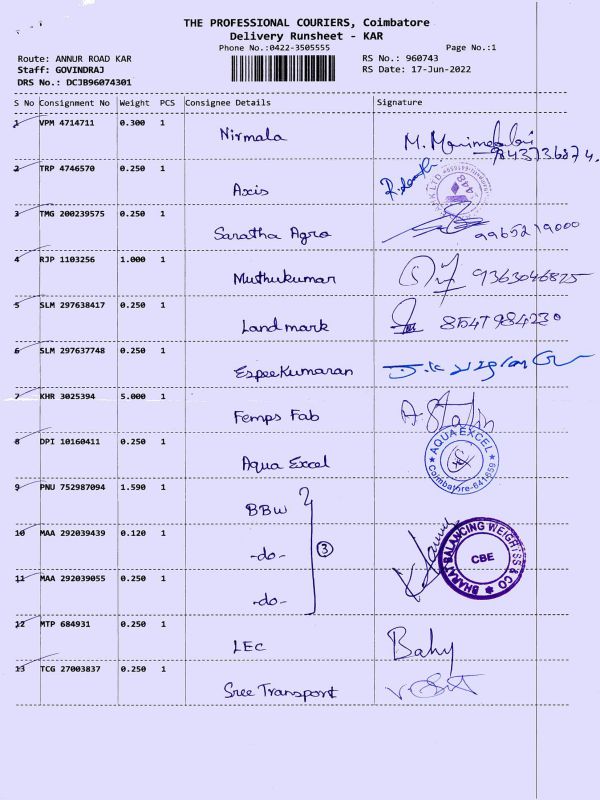 THE PROFESSIONAL COURIERS, Coimbatore
Delivery Runsheet - KAR
Phone No.:0422-3505555
Page No.:1
Route: ANNUR ROAD KAR
RS No.: 960743
Staff: GOVINDRAJ
RS Date: 17-Jun-2022
DRS No.: DCJB96074301
S No Consignment No Weight PCS Consignee Details Signature
1 VPM 4714711 0.300 1
Nirmala
9843736874.
2 TRP 4746570 0.250 1
Axis
448
3 TMG 200239575 0.250 1
Saratha Agro 9965219000
4 RJP 1103256 1.000 1
Muthukumar 9363046825
5 SLM 297638417 0.250 1
Landmark 8547984230
6 SLM 297637748 0.250 1
EspeeKumaran
7 KHR 3025394 5.000 1
Femps Fab A. Stalin
8 DPI 10160411 0.250 1
Aqua Excel
AQUA EXCEL
Coimbatore-641659
9 PNU 752987094 1.590 1
BBW
10 MAA 292039439 0.120 1
-do- 3
BHARAT BALANCING WEIGHTSS & CO
CBE
11 MAA 292039055 0.250 1
-do-
12 MTP 684931 0.250 1
LEC
13 TCG 27003837 0.250 1
Sree Transport